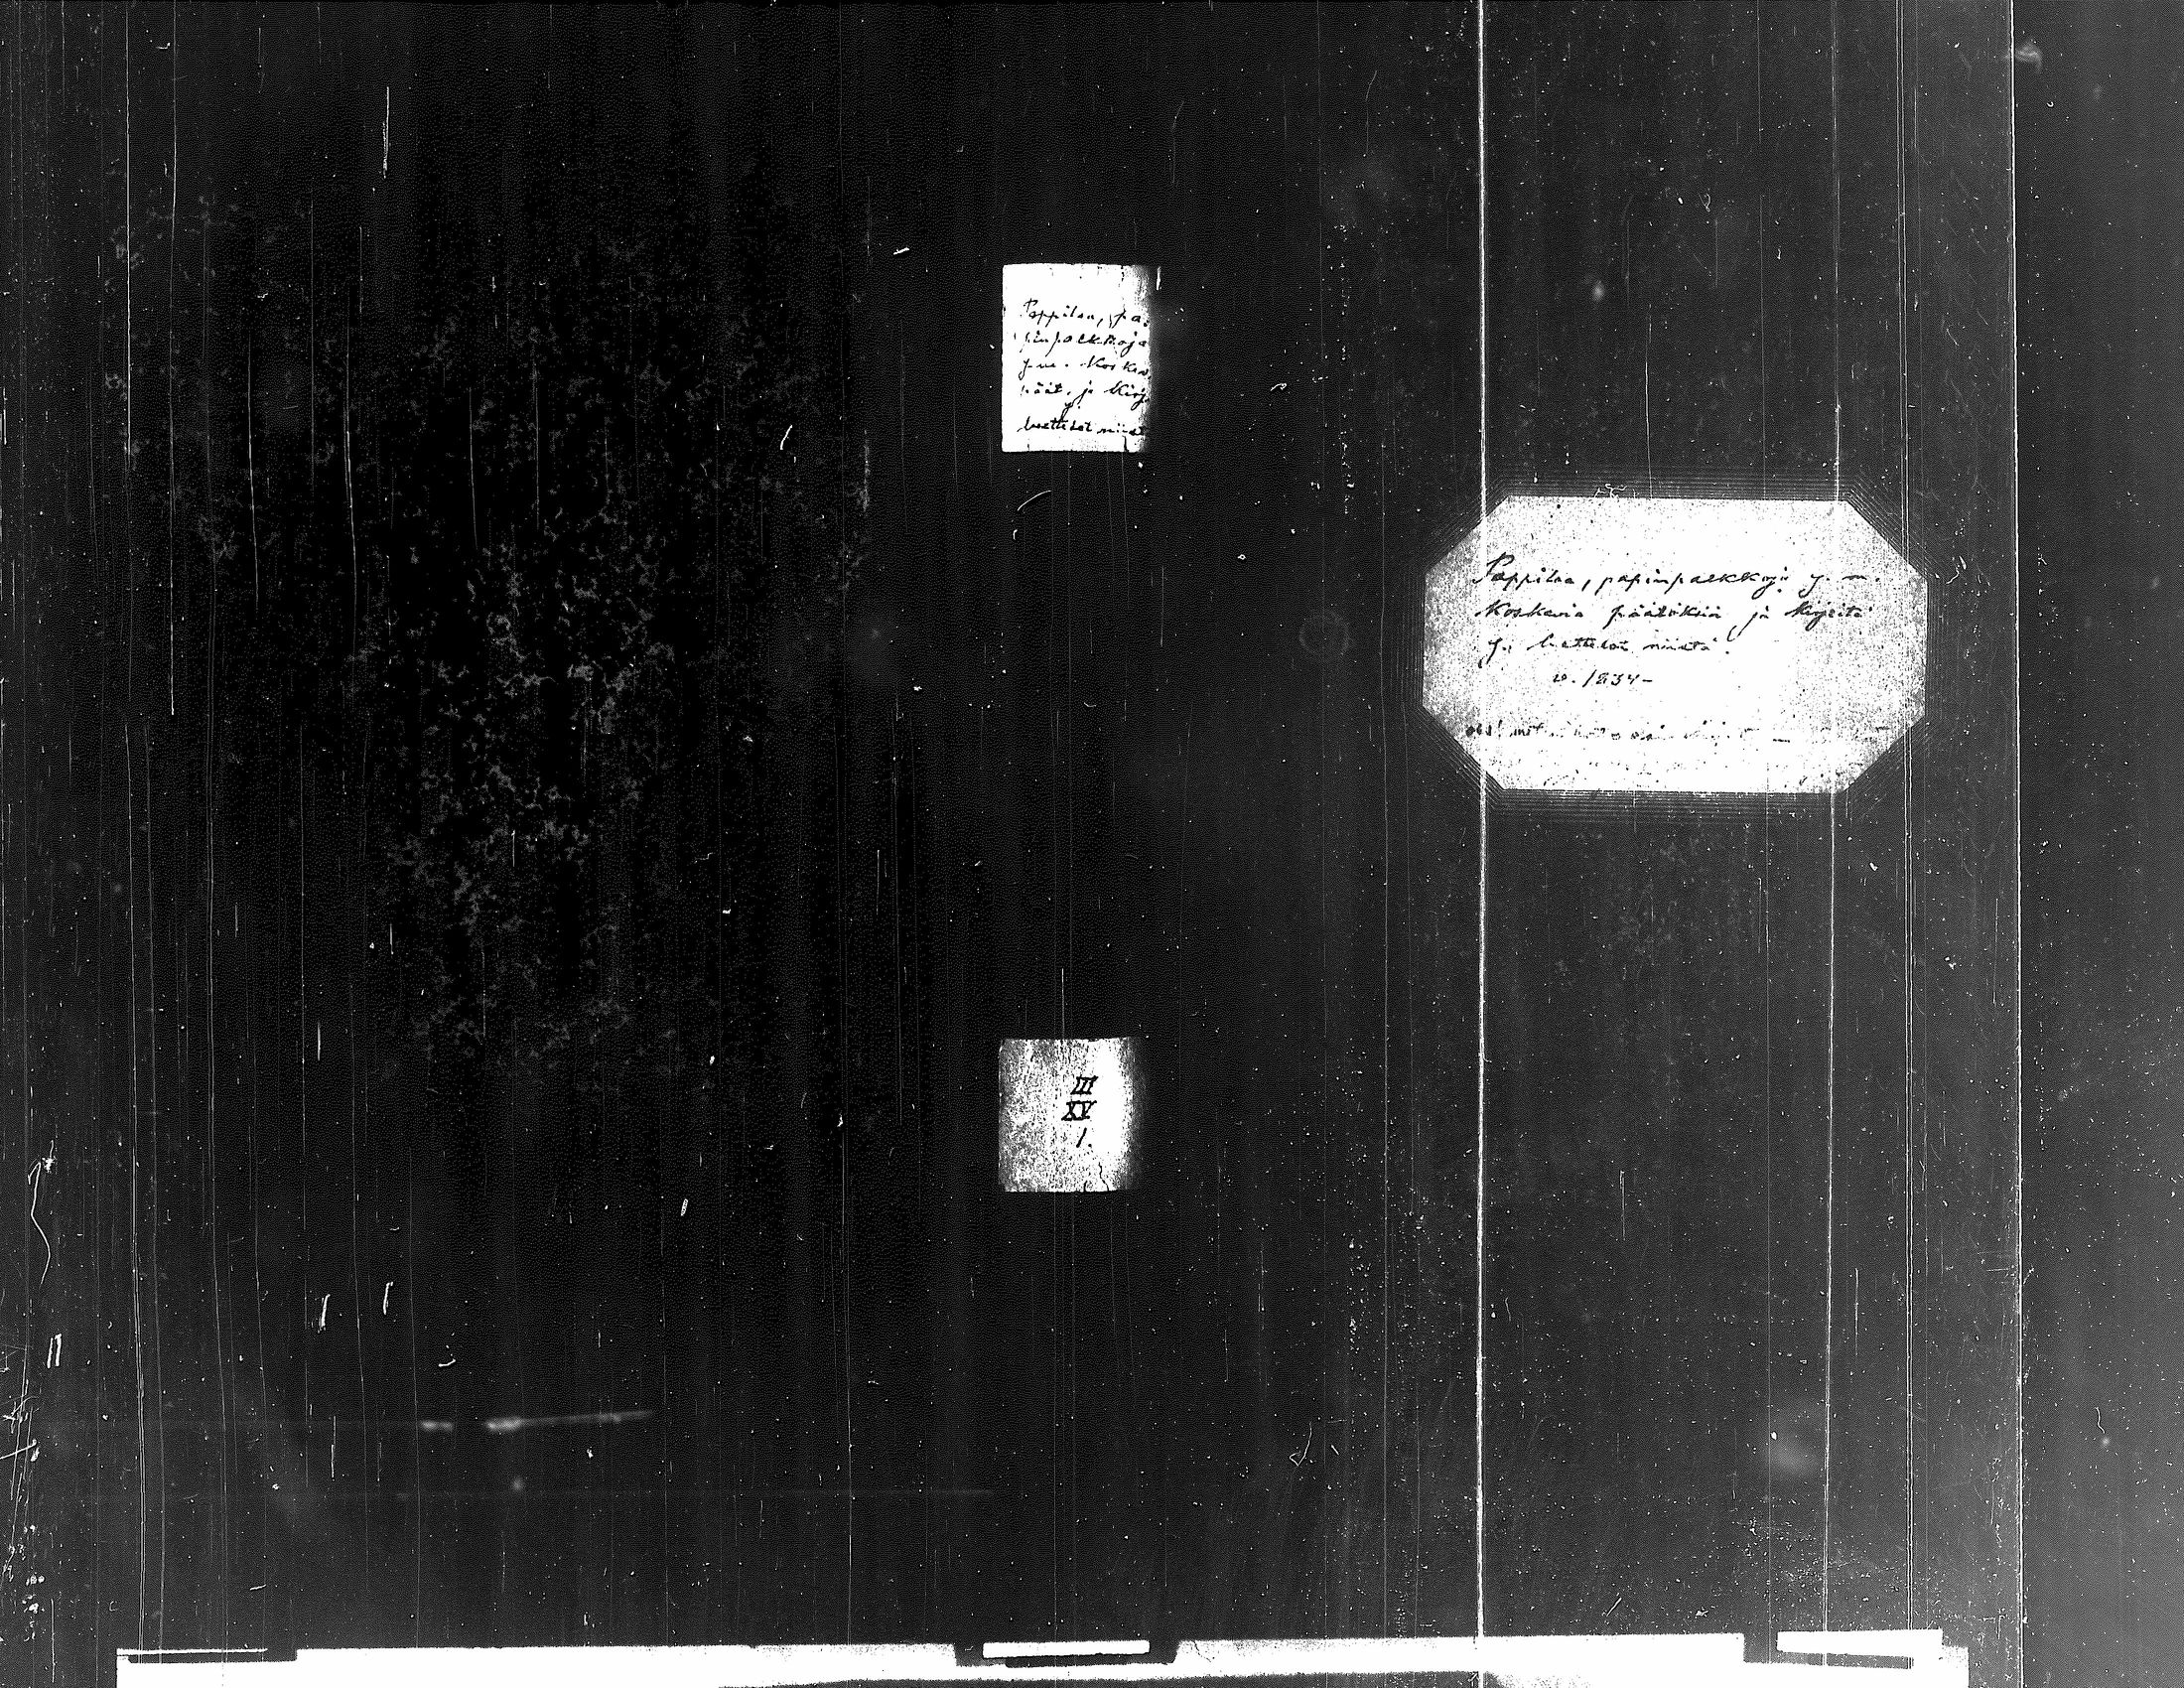 Pappilan, pa-
pinpalkkoja
y.m. koskev.
päät. ja kirj.
y.
luettelot niistä
III
XV
1.
Pappilaa, papinpalkkoja y. m.
koskevia päätöksiä ja kirjeitä
y. luettelot niistä
v. 1834-